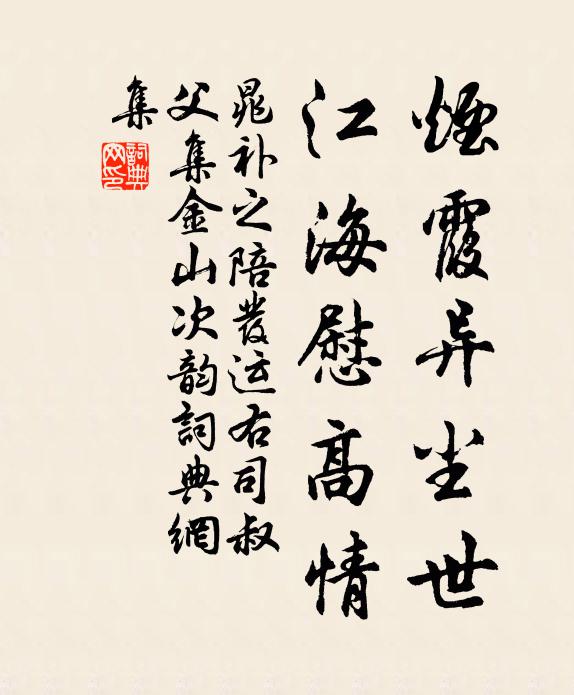 煙霞异尘世
江海慰高情
晁补之陪發运右司叔
父集金山次韵詞典網
集
詞典
网印